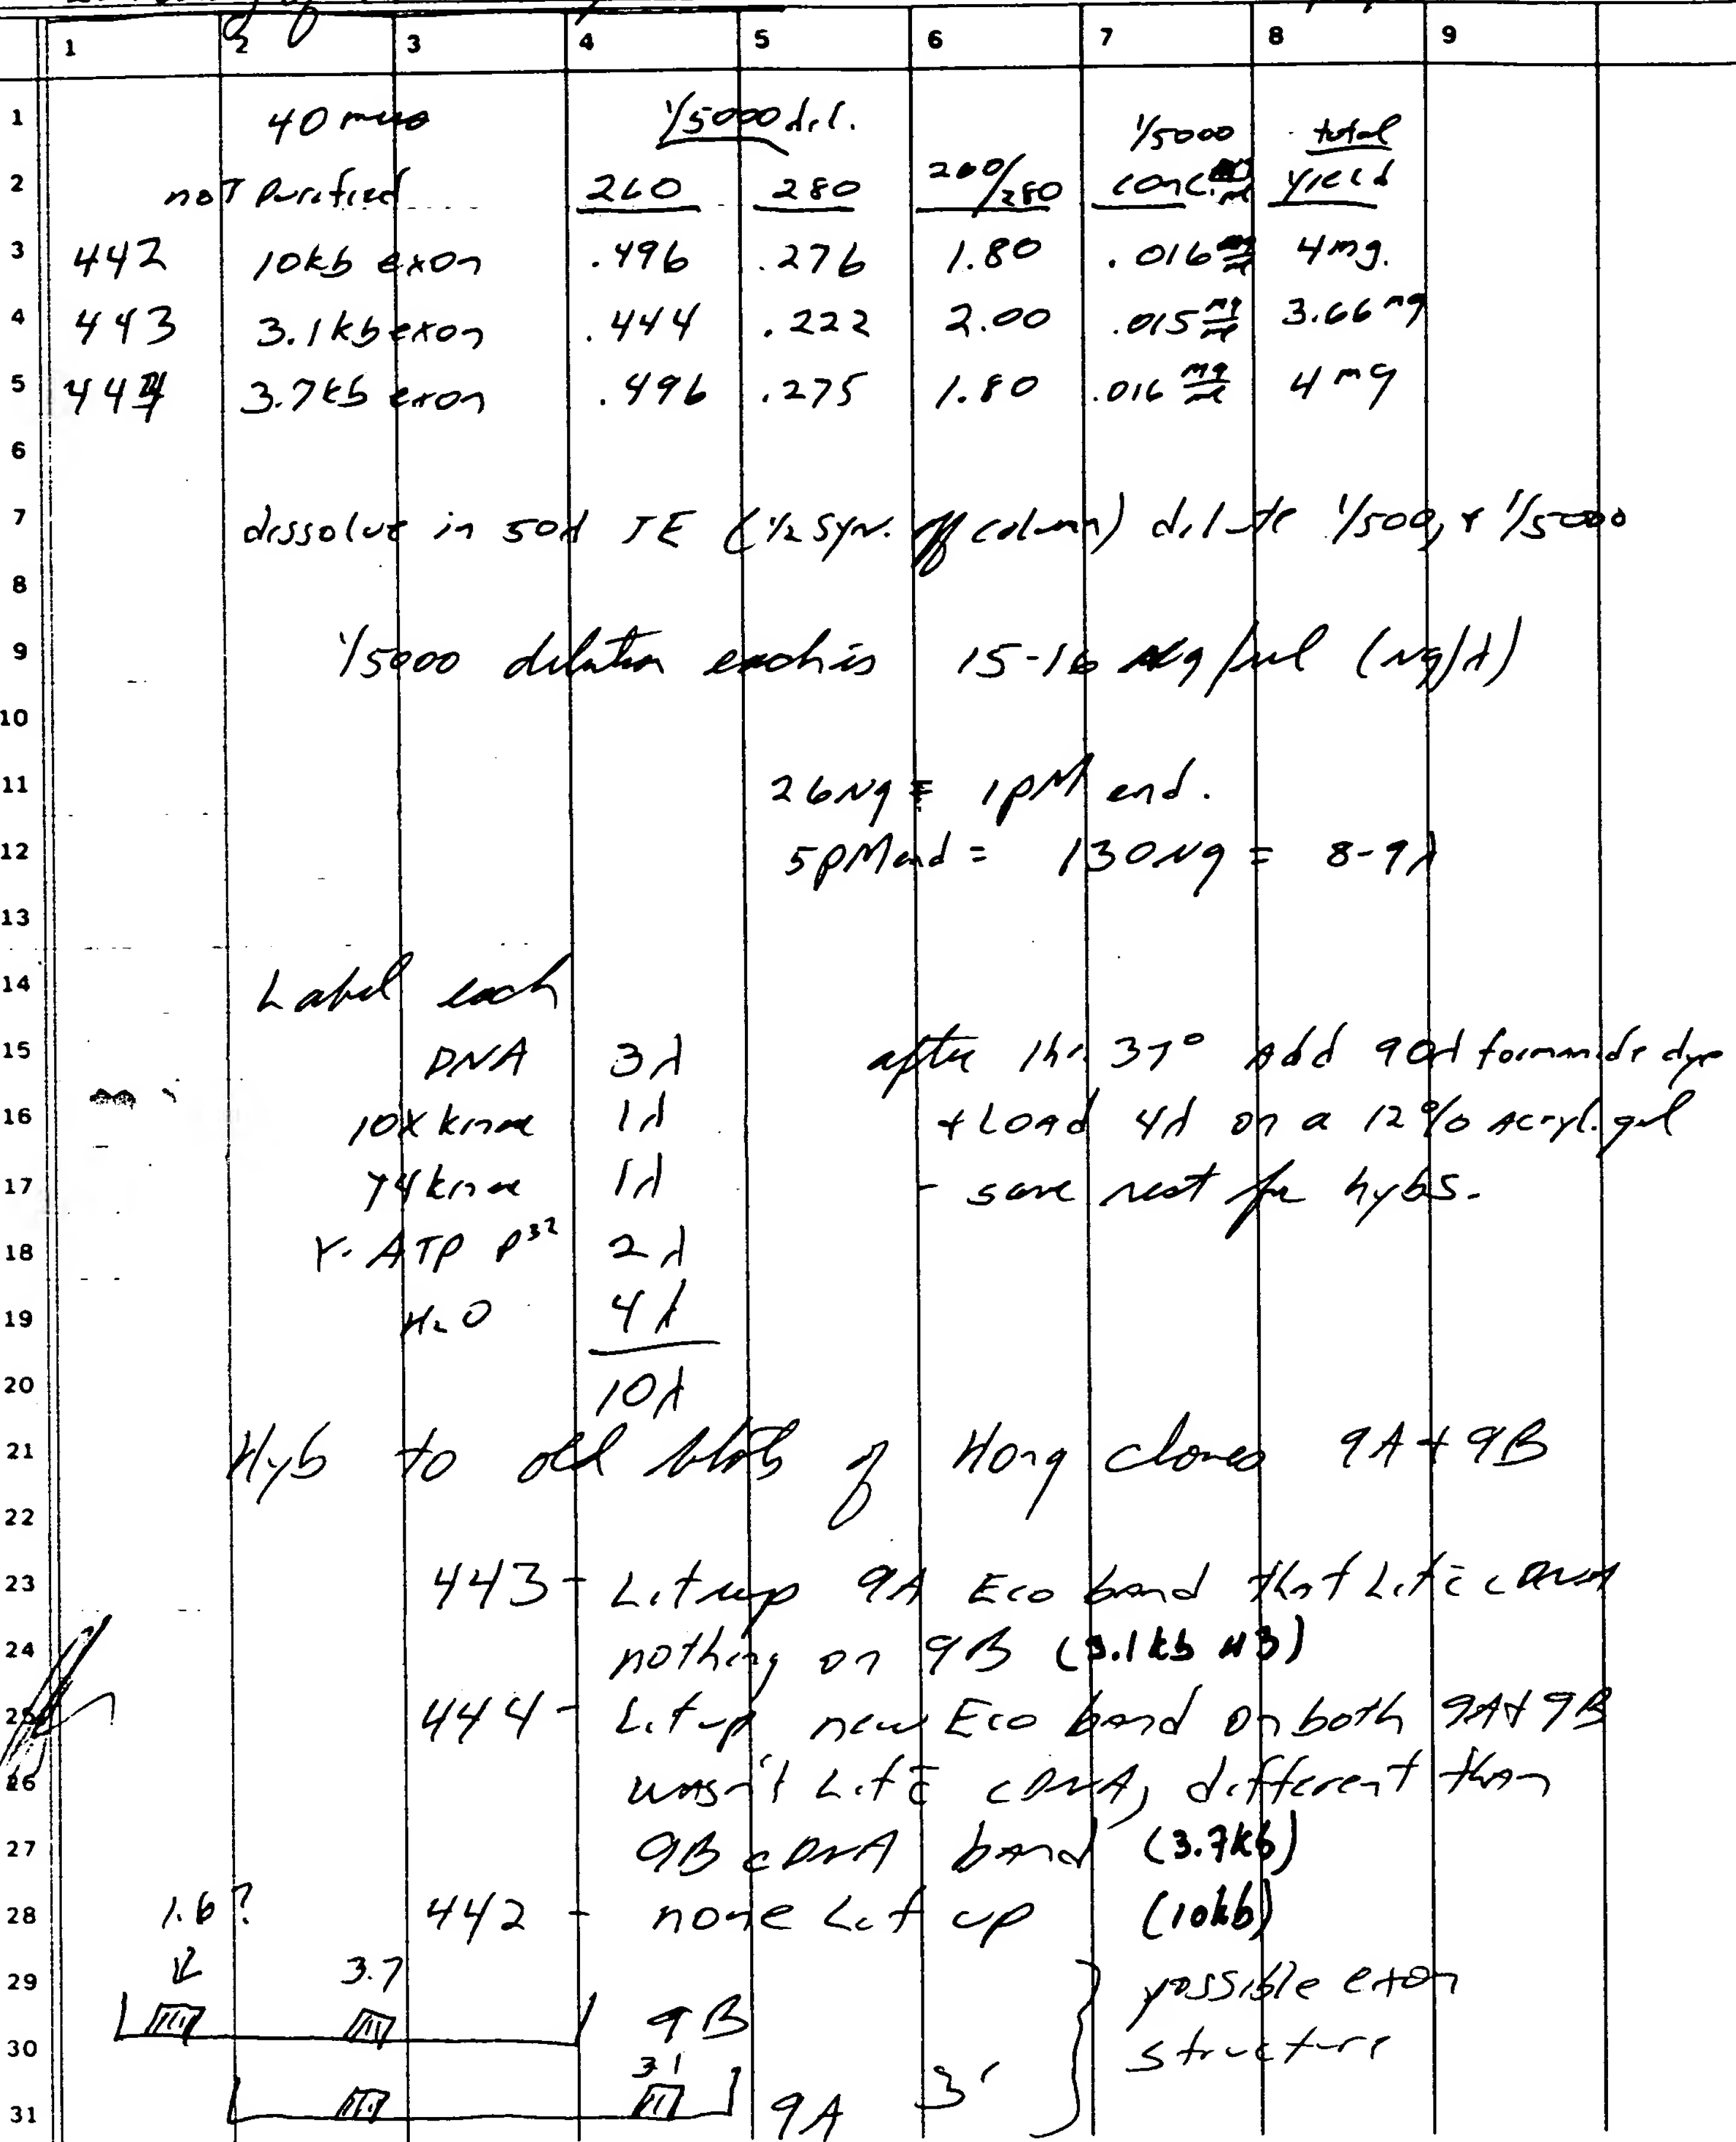 1 2 3 4 5 6 7 8 9
1 40 mers 1/5000 dil. 1/5000 total
2 not Purified 260 280 260/280 conc. yield
3 442 10kb exon .496 .276 1.80 .016 mg/ml 4mg.
4 443 3.1kb exon .444 .222 2.00 .015 mg/ml 3.66 mg
5 444 3.7kb exon .496 .275 1.80 .016 mg/ml 4 mg
6
7 dissolve in 50λ TE (1/2 syn. off column) dilute 1/500, + 1/5000
8
9 1/5000 dilution each is 15-16 ng/ul (ng/λ)
10
11 26ng = 1pM end.
12 5pM end = 130ng = 8-9λ
13
14 Label each
15 DNA 3λ after 1hr. 37° Add 90λ formamide dye
16 10X kinase 1λ + Load 4λ on a 12% acryl. gel
17 T4 kinase 1λ - save rest for hybs.
18 γ-ATP P32 2λ
19 H2O 4λ
20 10λ
21 Hyb to old blots of Hong clones 9A + 9B
22
23 443 - Lit up 9A Eco band that Lit c̄ cDNA
24 nothing on 9B (3.1kb H3)
25 444 - Lit up new Eco band on both 9A + 9B
26 wasn't Lit c̄ cDNA, different than
27 9B cDNA band (3.7kb)
28 1.6? 442 - none Lit up (10kb)
29 3.7 possible exon
30 9B structure
3.1
31 9A 3'